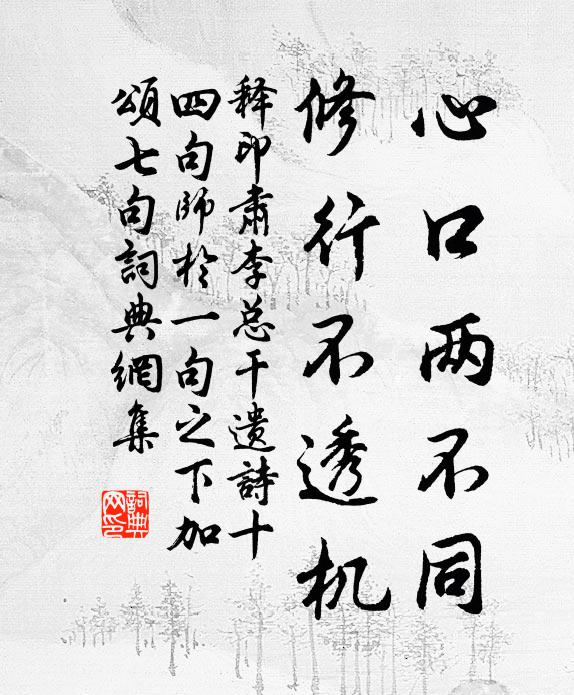 心口两不同
修行不透机
释印肃李总干遗詩十
四句師於一句之下加
頌七句詞典網集
詞典网印